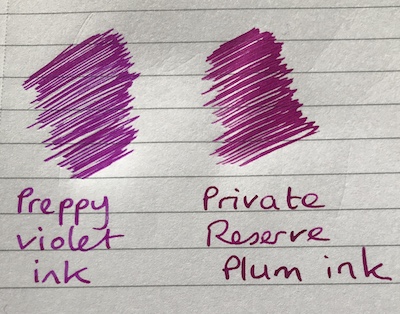 Preppy
violet
ink
Private
Reserve
Plum ink